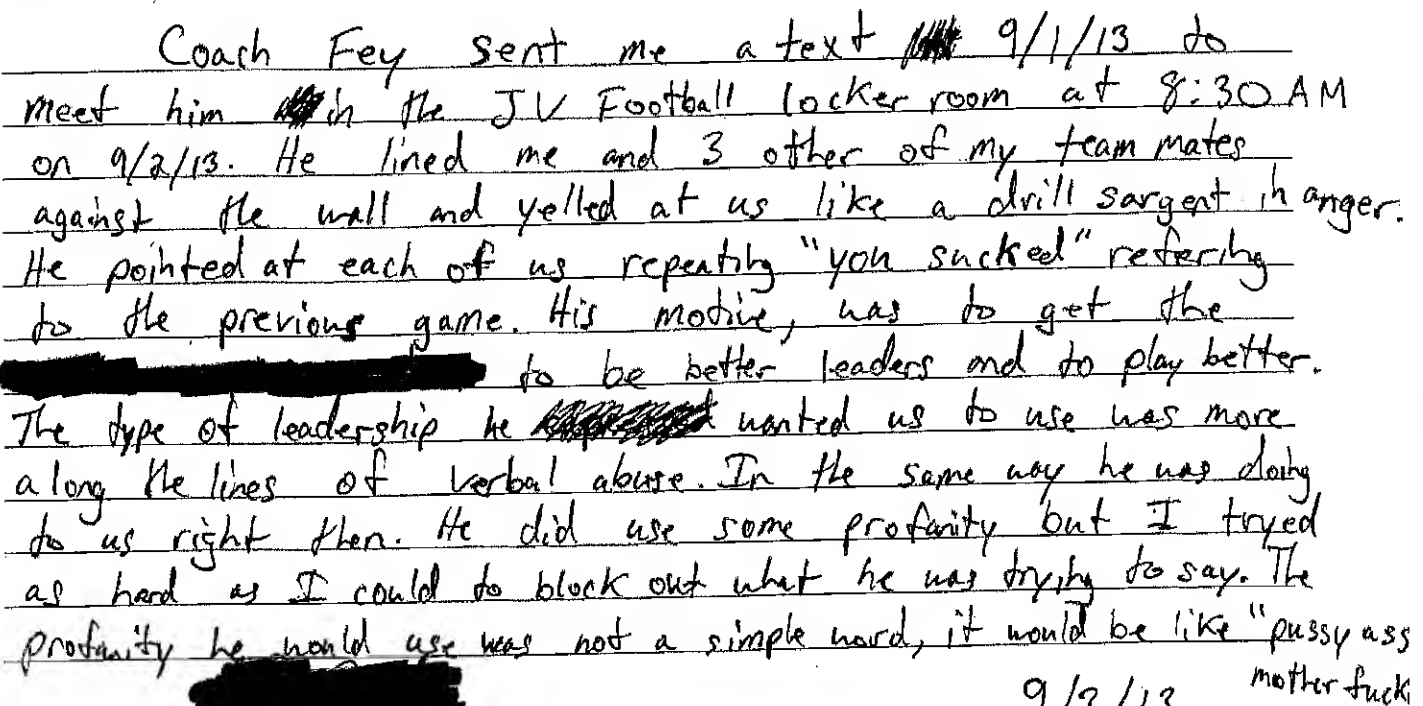 Coach Fey sent me a text 9/1/13 to
meet him in the JV Football locker room at 8:30 AM
on 9/2/13. He lined me and 3 other of my team mates
against the wall and yelled at us like a drill sargent in anger.
He pointed at each of us repeating "you sucked" refering
to the previous game. His motive, was to get the
to be better leaders and to play better.
The type of leadership he wanted us to use was more
along the lines of verbal abuse. In the same way he was doing
to us right then. He did use some profanity but I tryed
as hard as I could to block out what he was trying to say. The
profanity he would use was not a simple word, it would be like "pussy ass
mother fucki
9/2/13